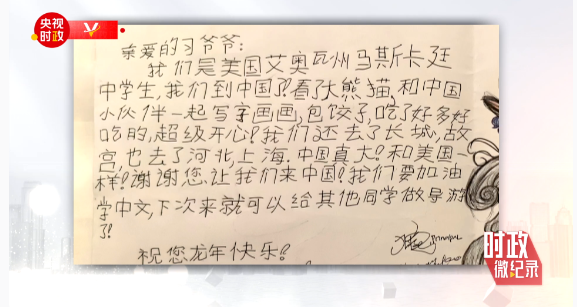 央视
时政
亲爱的习爷爷:
我们是美国艾奥瓦州马斯卡廷
中学生,我们到中国了!看了大熊猫,和中国
小伙伴一起写字画画,包饺子,吃了好多好
吃的,超级开心!我们还去了长城,故
宫,也去了河北上海.中国真大!和美国一
样!谢谢您让我们来中国!我们要加油
学中文,下次来就可以给其他同学做导游
了!
祝您龙年快乐!
时政
微纪录